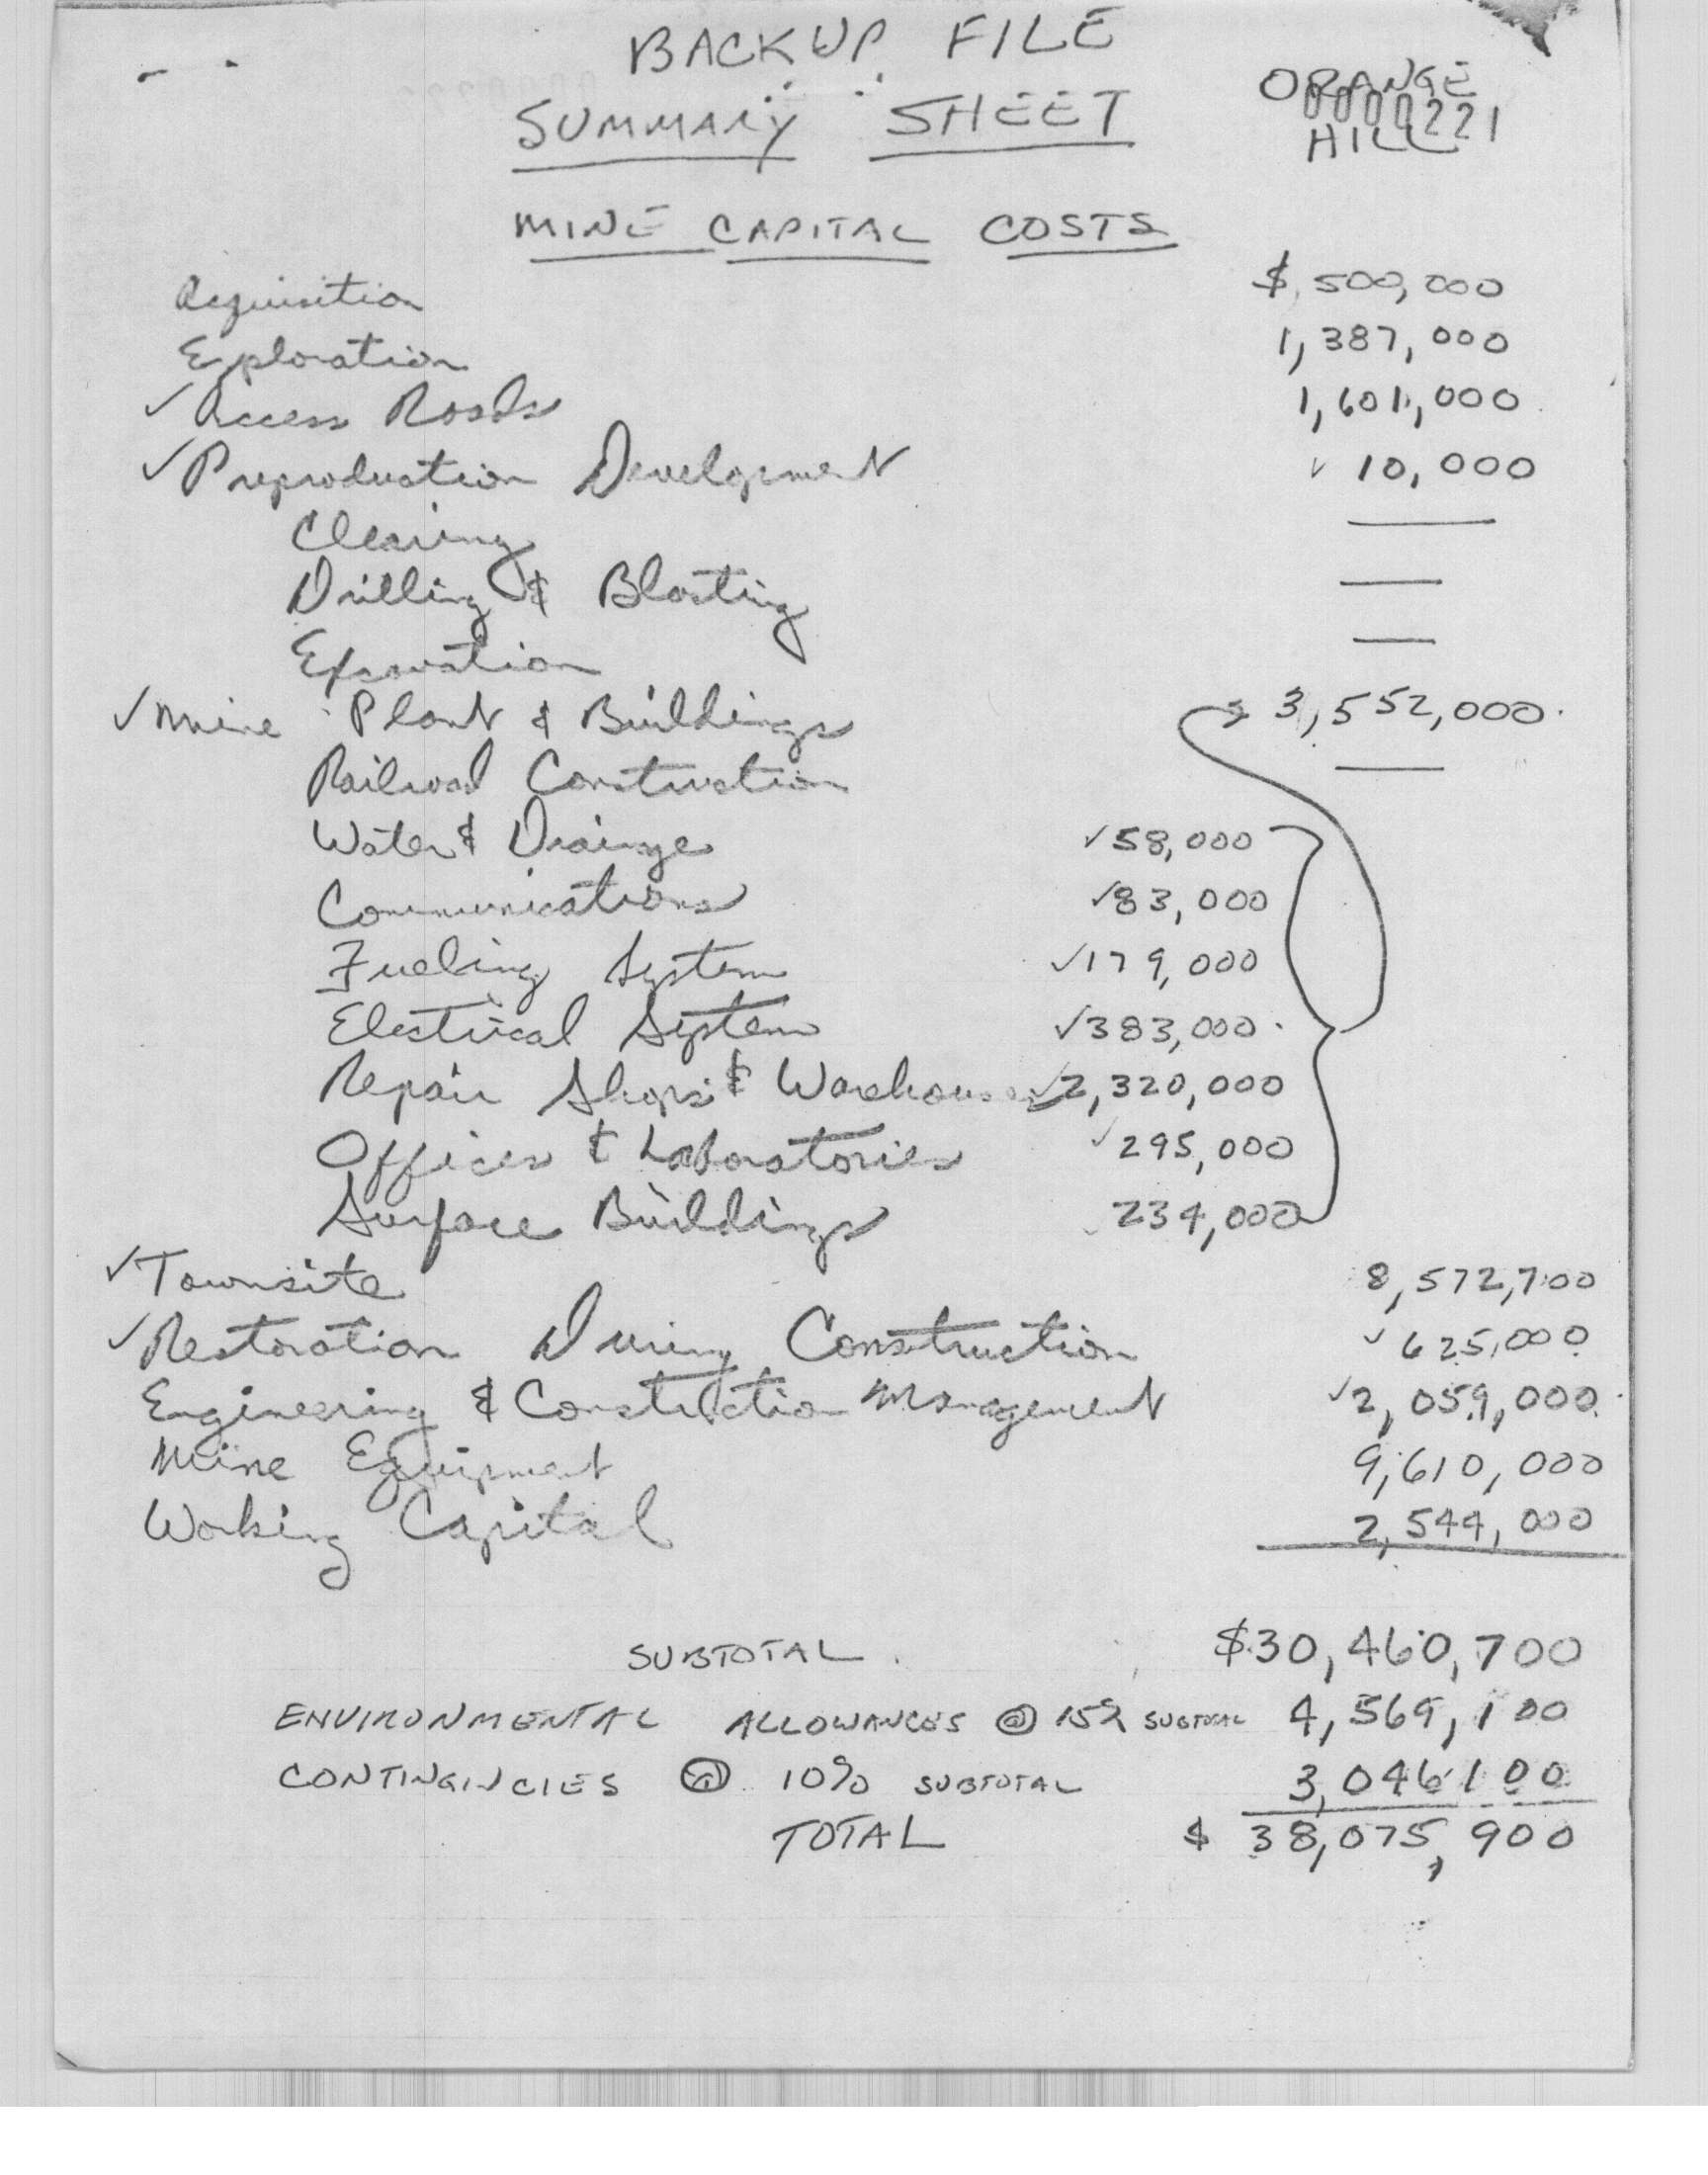 BACKUP FILE
ORANGE
0000221
HILL
SUMMARY SHEET
MINE CAPITAL COSTS
Acquisition $ 500,000
Exploration 1,387,000
✓ Access Roads 1,601,000
✓ Preproduction Development ✓ 10,000
Clearing —
Drilling & Blasting —
Excavation —
✓ Mine Plant & Buildings 3,552,000
Railroad Construction —
Water & Drainge ✓58,000
Communications ✓83,000
Fueling System ✓179,000
Electrical System ✓383,000
Repair Shops & Warehouses ✓2,320,000
Offices & Laboratories ✓295,000
Surface Buildings 234,000
✓ Townsite 8,572,700
✓ Restoration During Construction ✓ 625,000
Engineering & Construction Management ✓2,059,000
Mine Equipment 9,610,000
Working Capital 2,544,000
SUBTOTAL $30,460,700
ENVIRONMENTAL ALLOWANCES @ 15% SUBTOTAL 4,569,100
CONTINGINCIES @ 10% SUBTOTAL 3,046100
TOTAL $ 38,075,900